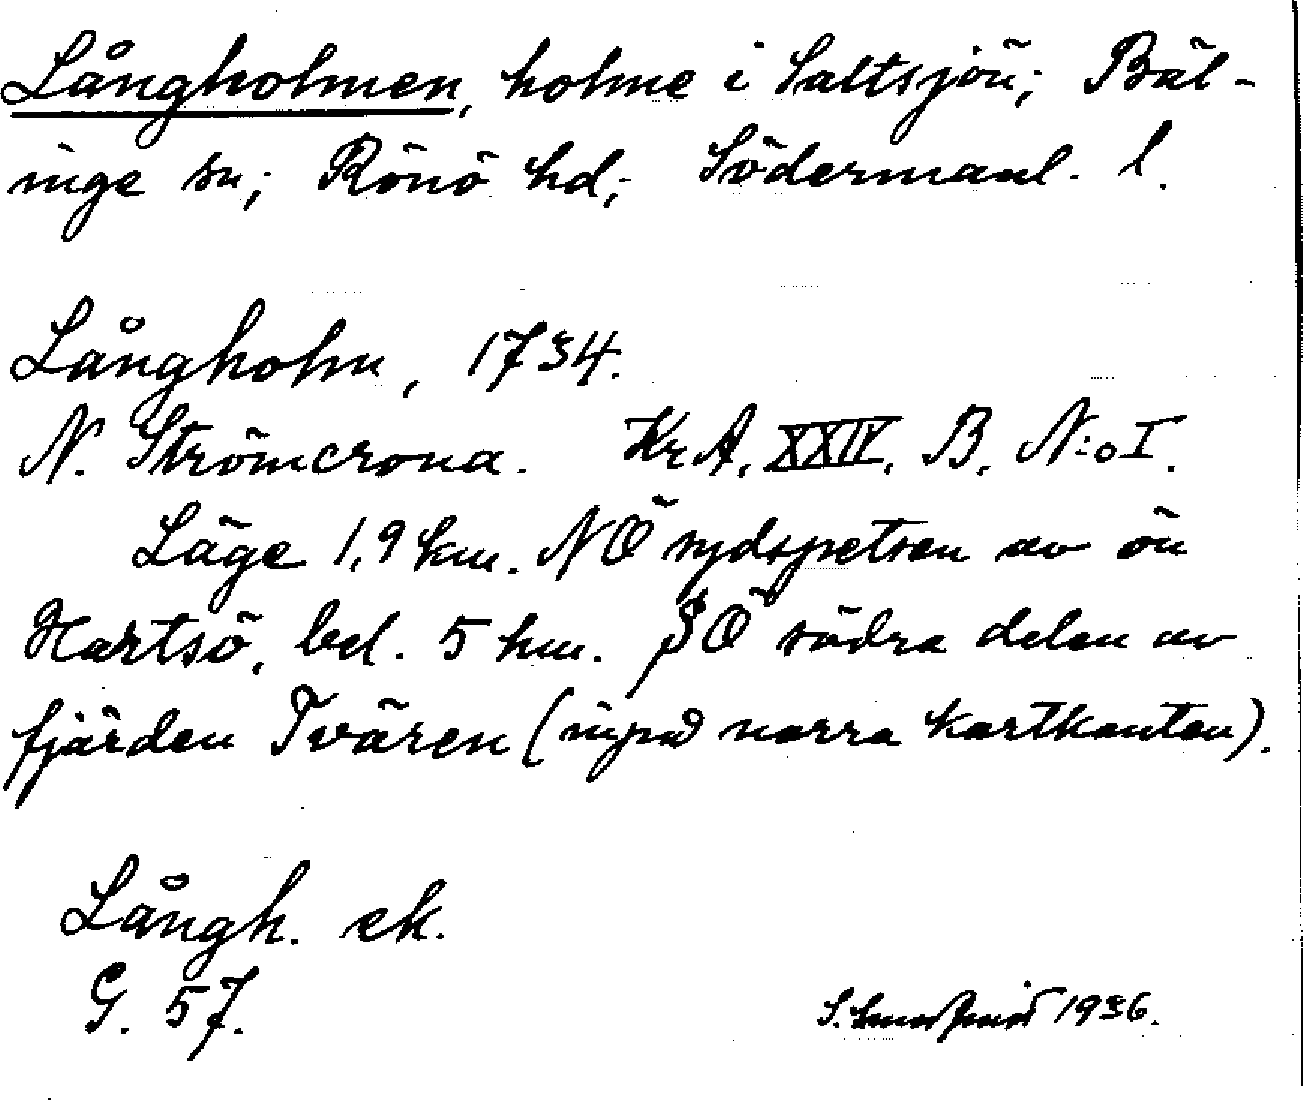 Långholmen, holme i Saltsjön; Bäl-
inge sn; Rönö hd; Södermanl. l.
Långholm, 1734.
N. Strömcrona. Kr A. XXIV. B. N:o I.
Läge 1,9 km. NÖ sydspetsen av ön
Hartsö, bel. 5 km. SÖ södra delen av
fjärden Tvären (inpå norra kartkanten).
Långh. ek.
G. 57.
S. 1936.